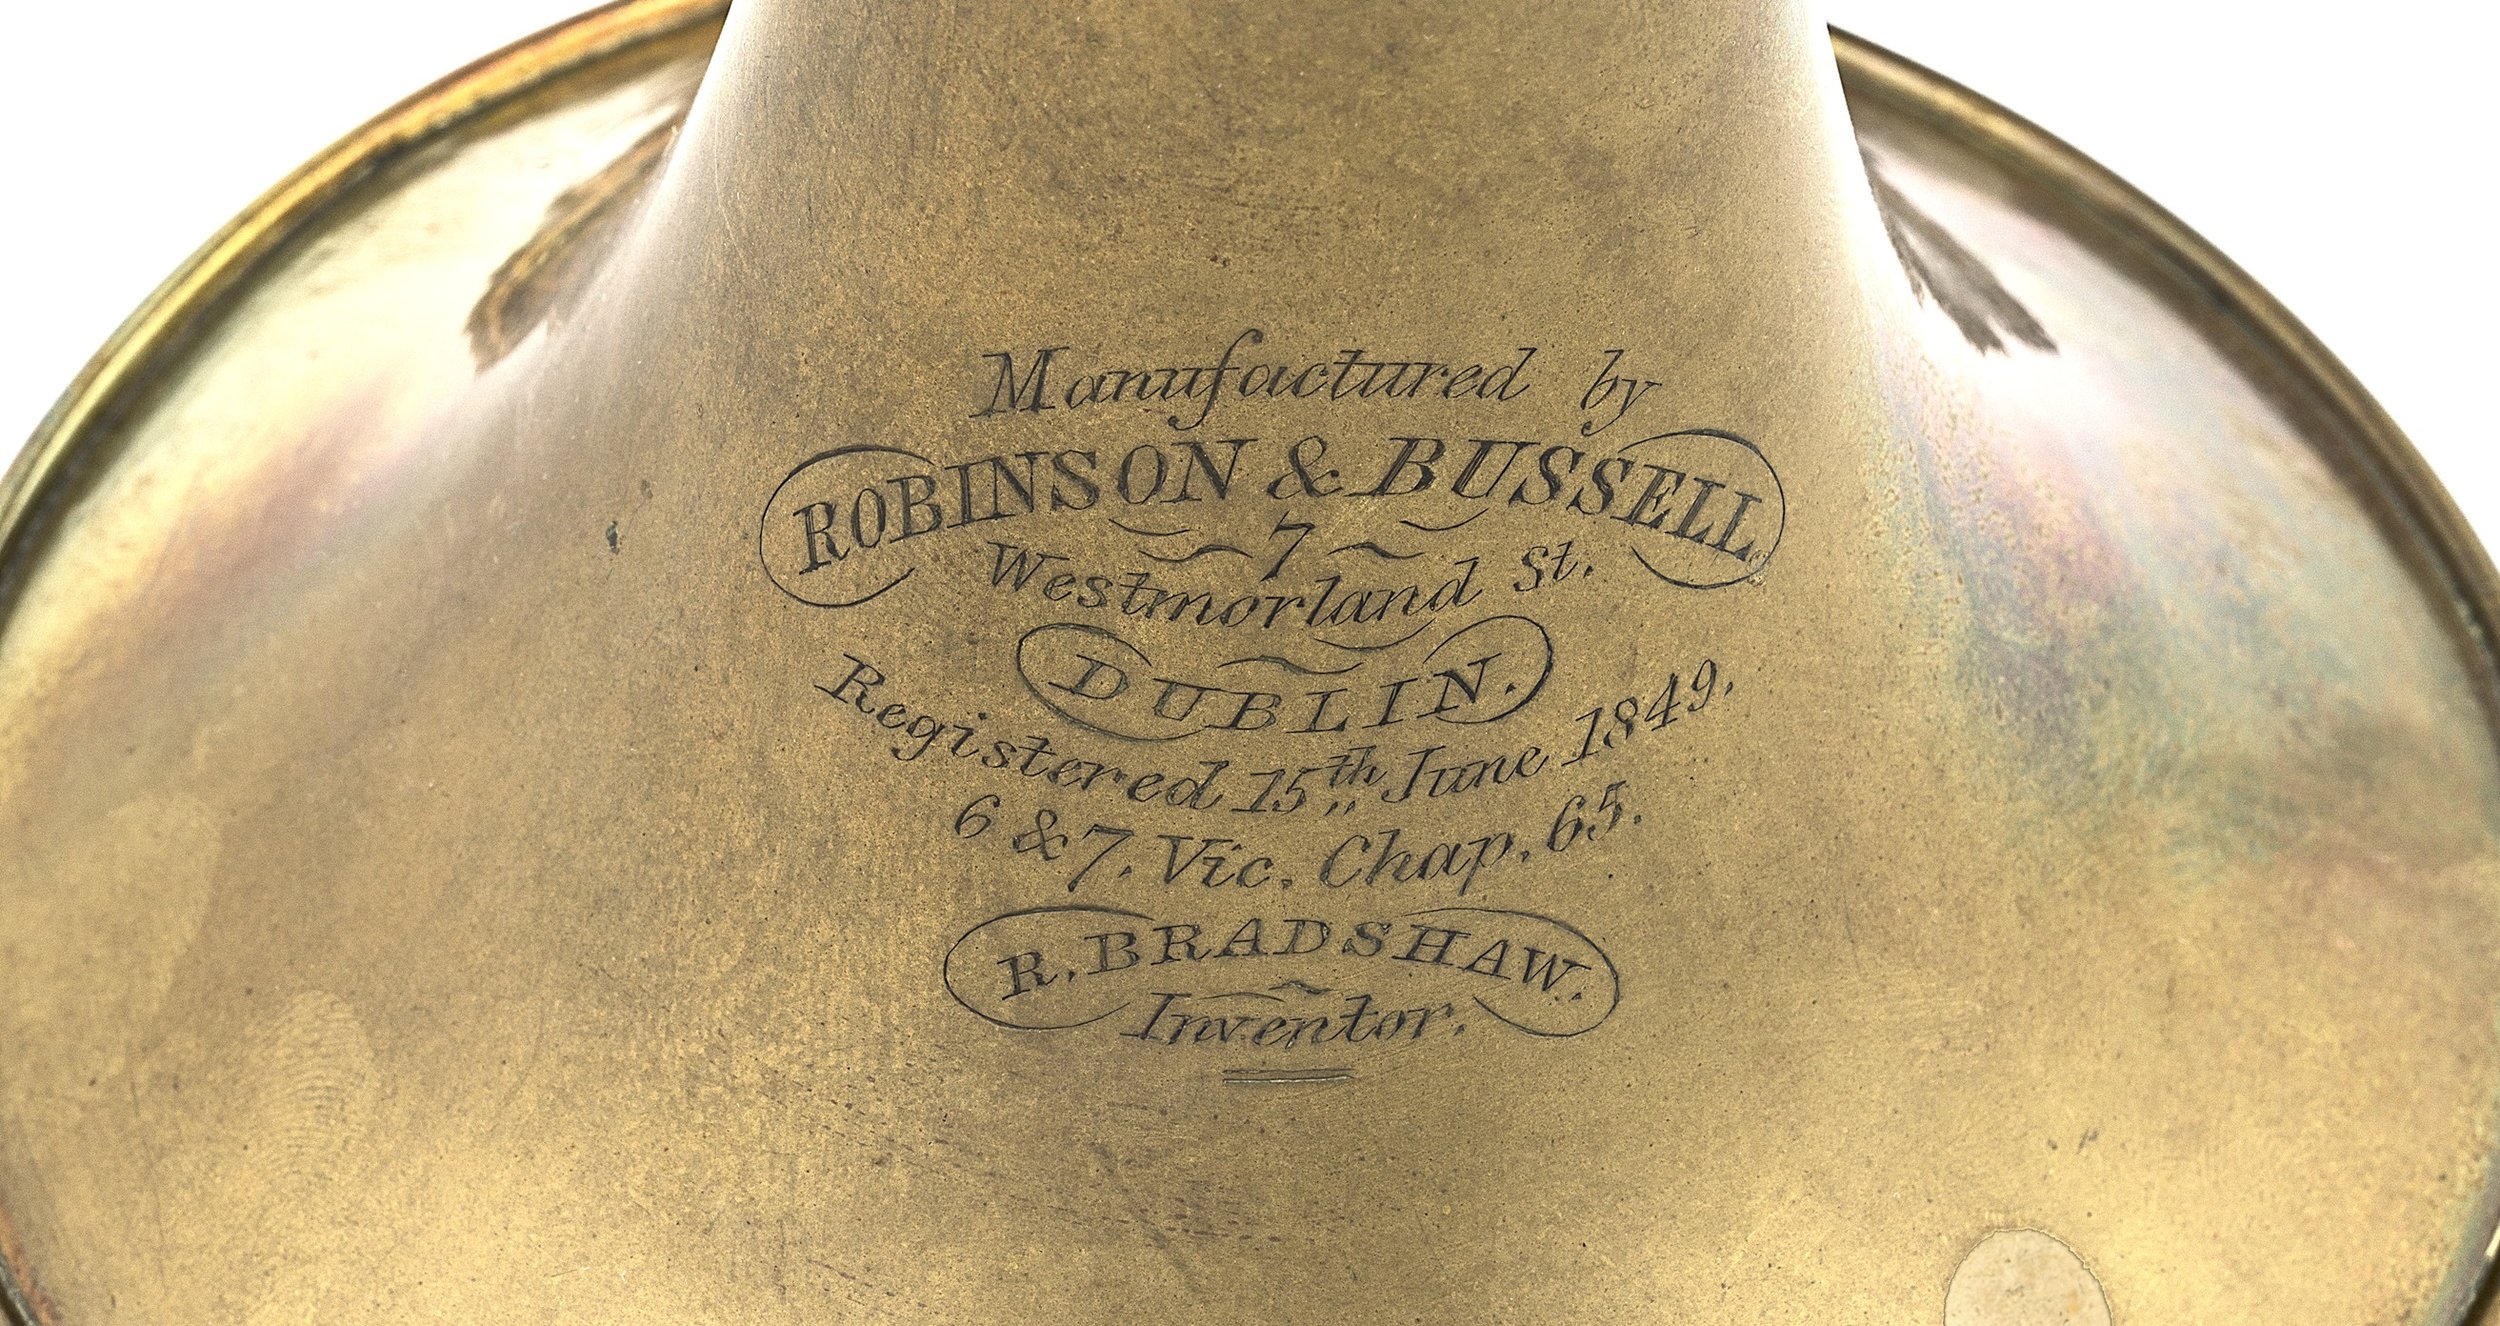 Manufactured by
ROBINSON & BUSSELL.
7
Westmorland St.
DUBLIN.
Registered 15th June 1849.
6 & 7. Vic. Chap. 65.
R. BRADSHAW.
Inventor.